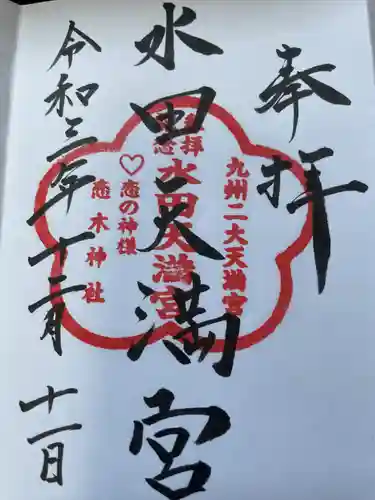 奉拝
水田天満宮
令和三年十二月
十一日
九州二大天満宮
参拝
水田天満宮
♡恋の神様
恋木神社